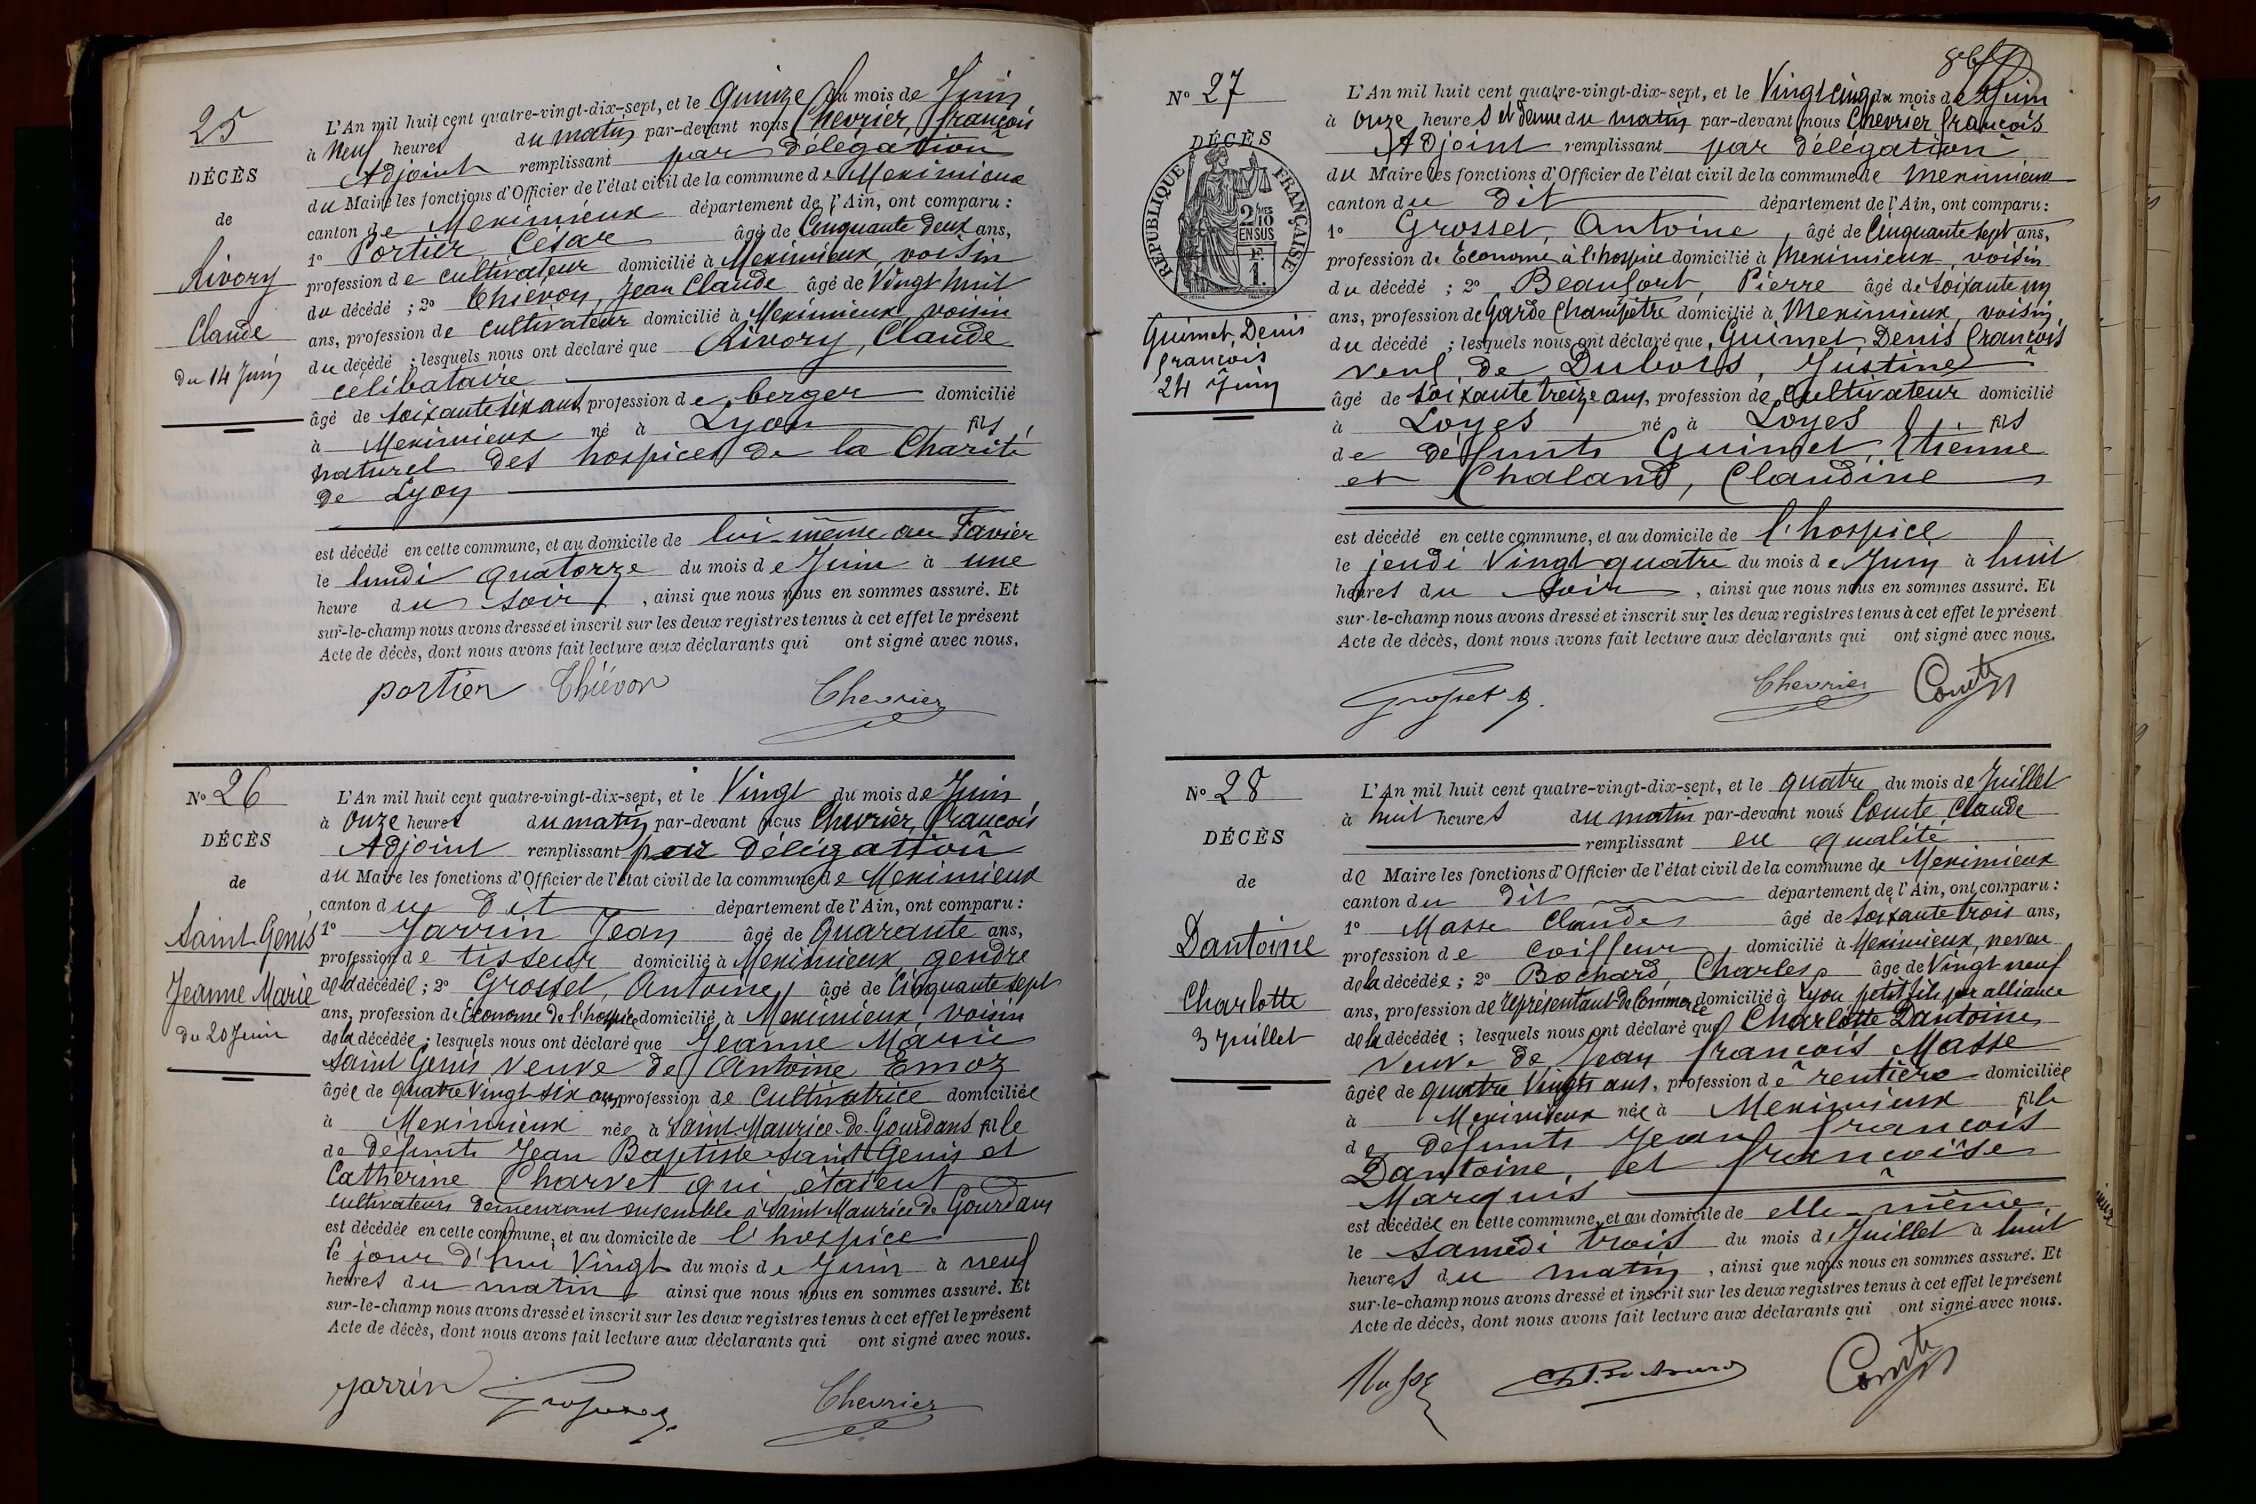 25
DÉCÈS
de
Rivory
Claude
du 14 Juin
L'An mil huit cent quatre-vingt-dix-sept, et le quinze du mois de Juin
à neuf heures du matin par-devant nous Chevrier, François
Adjoint remplissant par délégation
du Maire les fonctions d'Officier de l'état civil de la commune de Meximieux
canton de Meximieux département de l'Ain, ont comparu :
1° Portier César âgé de Cinquante deux ans,
profession de cultivateur domicilié à Meximieux, voisin
du décédé ; 2° Thiévon, Jean Claude âgé de Vingt huit
ans, profession de cultivateur domicilié à Meximieux, voisin
du décédé ; lesquels nous ont déclaré que Rivory, Claude
célibataire
âgé de soixante six ans, profession de berger domicilié
à Meximieux né à Lyon fils
naturel des hospices de la Charité
de Lyon
est décédé en cette commune, et au domicile de lui-même au Favier
le lundi quatorze du mois de Juin à une
heure du soir, ainsi que nous nous en sommes assuré. Et
sur-le-champ nous avons dressé et inscrit sur les deux registres tenus à cet effet le présent
Acte de décès, dont nous avons fait lecture aux déclarants qui ont signé avec nous.
portier Thiévon Chevrier
N° 26
DÉCÈS
de
Saint-Genis
Jeanne Marie
du 20 Juin
L'An mil huit cent quatre-vingt-dix-sept, et le Vingt du mois de Juin
à onze heures du matin par-devant nous Chevrier, François
Adjoint remplissant par délégation
du Maire les fonctions d'Officier de l'état civil de la commune de Meximieux
canton du dit département de l'Ain, ont comparu :
1° Jarrin Jean âgé de quarante ans,
profession de tisseur domicilié à Meximieux gendre
de la décédée ; 2° Grosset, Antoine, âgé de Cinquante sept
ans, profession de Econome de l'hospice domicilié à Meximieux, voisin
de la décédée ; lesquels nous ont déclaré que Jeanne Marie
Saint Genis veuve de Antoine Emoz
âgée de quatre vingt six ans, profession de Cultivatrice domiciliée
à Meximieux née à Saint-Maurice-de-Gourdans fille
de défunts Jean Baptiste Saint Genis et
Catherine Charvet qui étaient
cultivateurs demeurant ensemble à Saint Maurice de Gourdans
est décédée en cette commune, et au domicile de l'hospice
le jour d'hui Vingt du mois de Juin à neuf
heures du matin ainsi que nous nous en sommes assuré. Et
sur-le-champ nous avons dressé et inscrit sur les deux registres tenus à cet effet le présent
Acte de décès, dont nous avons fait lecture aux déclarants qui ont signé avec nous.
Jarrin Chevrier
N° 27
DÉCÈS
RÉPUBLIQUE FRANÇAISE
2/10 EN SUS
F. 1.
Guimet, Denis
François
24 Juin
L'An mil huit cent quatre-vingt-dix-sept, et le Vingt cinq du mois de Juin
à onze heures et demie du matin par-devant nous Chevrier François
Adjoint remplissant par délégation
du Maire les fonctions d'Officier de l'état civil de la commune de Meximieux
canton du dit département de l'Ain, ont comparu :
1° Grosset, Antoine, âgé de Cinquante sept ans,
profession de Econome à l'hospice domicilié à Meximieux, voisin
du décédé ; 2° Beaufort, Pierre âgé de soixante un
ans, profession de Garde Champêtre domicilié à Meximieux, voisin
du décédé ; lesquels nous ont déclaré que, Guimet, Denis François
veuf de Dubois, Justine
âgé de soixante treize ans, profession de Cultivateur domicilié
à Loyes né à Loyes fils
de défunts Guimet, Etienne
et Chaland, Claudine
est décédé en cette commune, et au domicile de l'hospice
le jeudi Vingt quatre du mois de Juin à huit
heures du soir, ainsi que nous nous en sommes assuré. Et
sur-le-champ nous avons dressé et inscrit sur les deux registres tenus à cet effet le présent
Acte de décès, dont nous avons fait lecture aux déclarants qui ont signé avec nous.
Grosset Chevrier Comte
N° 28
DÉCÈS
de
Dantoine
Charlotte
3 Juillet
L'An mil huit cent quatre-vingt-dix-sept, et le quatre du mois de Juillet
à huit heures du matin par-devant nous Comte, Claude
remplissant en qualité
de Maire les fonctions d'Officier de l'état civil de la commune de Meximieux
canton du dit département de l'Ain, ont comparu :
1° Masse Claude âgé de soixante trois ans,
profession de coiffeur, domicilié à Meximieux, neveu
de la décédée ; 2° Bochard, Charles, âgé de Vingt neuf
ans, profession de représentant de Commerce domicilié à Lyon petit fils par alliance
de la décédée ; lesquels nous ont déclaré que Charlotte Dantoine
veuve de Jean François Masse
âgée de quatre Vingts ans, profession de rentière domiciliée
à Meximieux née à Meximieux fille
de défunts Jean François
Dantoine, et Françoise
Marquis
est décédée en cette commune, et au domicile de elle-même
le samedi trois du mois de Juillet à huit
heures du matin, ainsi que nous nous en sommes assuré. Et
sur-le-champ nous avons dressé et inscrit sur les deux registres tenus à cet effet le présent
Acte de décès, dont nous avons fait lecture aux déclarants qui ont signé avec nous.
Masse Comte